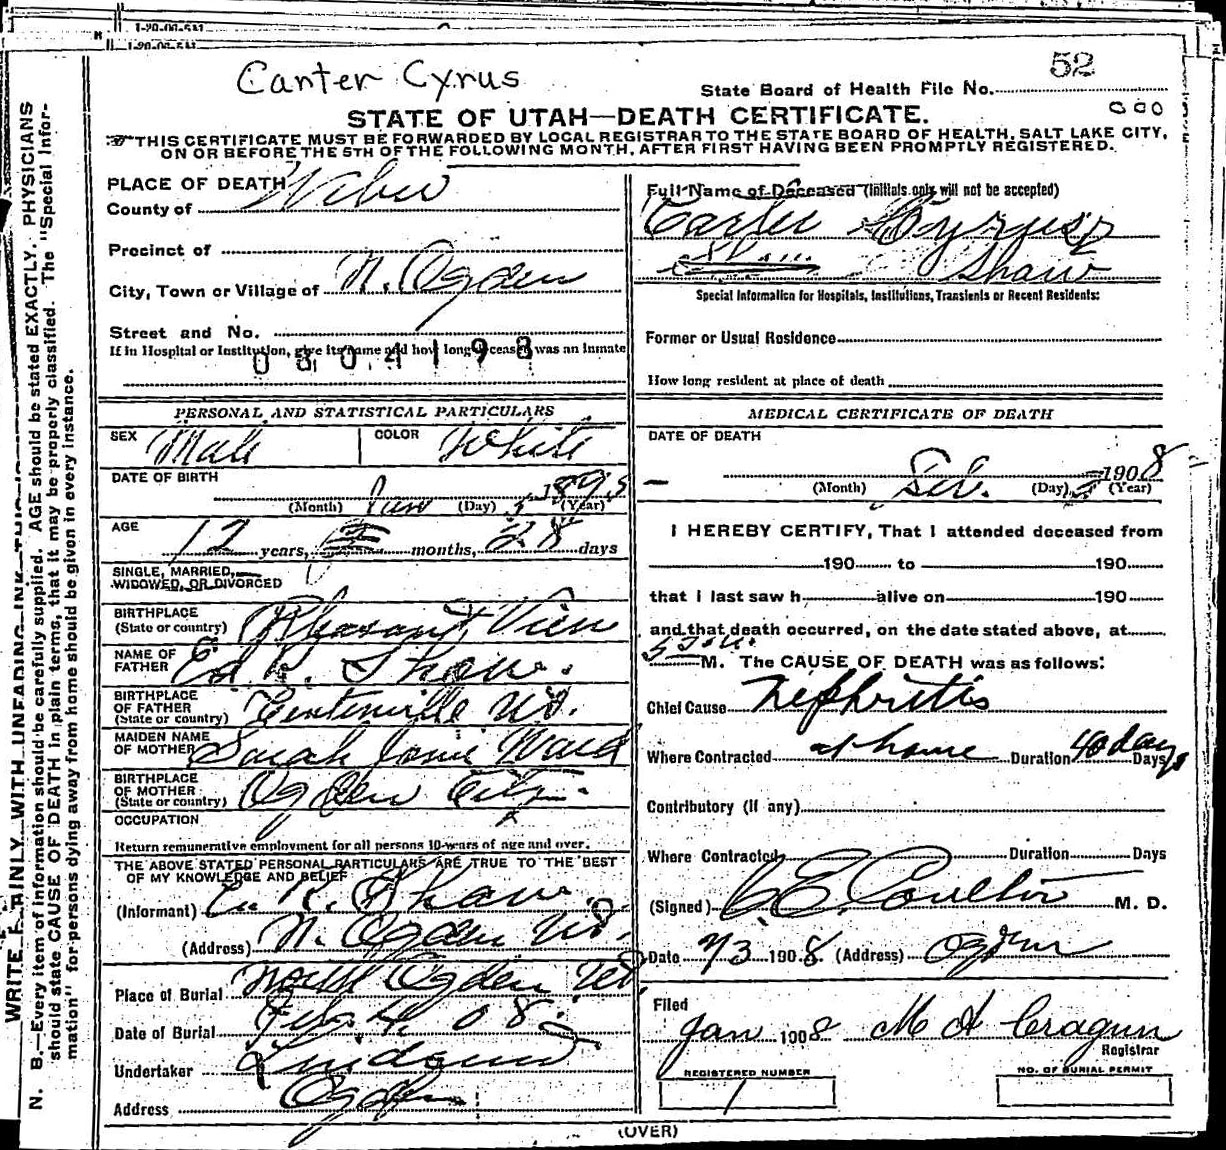 1-20-06-5M
1-20-06-5M
Canter Cyrus
52
State Board of Health File No.
STATE OF UTAH—DEATH CERTIFICATE.
000
THIS CERTIFICATE MUST BE FORWARDED BY LOCAL REGISTRAR TO THE STATE BOARD OF HEALTH, SALT LAKE CITY,
ON OR BEFORE THE 5TH OF THE FOLLOWING MONTH, AFTER FIRST HAVING BEEN PROMPTLY REGISTERED.
PLACE OF DEATH
County of Weber
Precinct of
City, Town or Village of N. Ogden
Street and No.
If in Hospital or Institution, give its name and how long deceased was an Inmate
0304198
Full Name of Deceased (Initials only will not be accepted)
Carter Cyrus
Shaw
Special Information for Hospitals, Institutions, Transients or Recent Residents:
Former or Usual Residence
How long resident at place of death
PERSONAL AND STATISTICAL PARTICULARS
SEX Male COLOR White
DATE OF BIRTH
Jan 5 1895
(Month) (Day) (Year)
AGE
12 years, months, 28 days
SINGLE, MARRIED,
WIDOWED, OR DIVORCED
BIRTHPLACE
(State or country) Pleasant View
NAME OF
FATHER Ed K. Shaw.
BIRTHPLACE
OF FATHER
(State or country) Centerville Ut.
MAIDEN NAME
OF MOTHER Sarah Janie Ward
BIRTHPLACE
OF MOTHER
(State or country) Ogden City.
OCCUPATION
Return remunerative employment for all persons 10-years of age and over.
THE ABOVE STATED PERSONAL PARTICULARS ARE TRUE TO THE BEST
OF MY KNOWLEDGE AND BELIEF
(Informant) E. K. Shaw
(Address) N. Ogden Ut.
Place of Burial North Ogden Ut.
Date of Burial Feb 4. 08.
Undertaker Lindquist
Address Ogden
MEDICAL CERTIFICATE OF DEATH
DATE OF DEATH
Feb. 2 1908
(Month) (Day) (Year)
I HEREBY CERTIFY, That I attended deceased from
190 to 190
that I last saw h alive on 190
and that death occurred, on the date stated above, at
M. The CAUSE OF DEATH was as follows:
Chief Cause Nephritis
Where Contracted at home Duration 40 days Days
Contributory (If any)
Where Contracted Duration Days
(Signed) C E Coulter M. D.
Date 2/3 1908. (Address) Ogden
Filed
Jan 1908 M A Cragun
Registrar
REGISTERED NUMBER
1
NO. OF BURIAL PERMIT
(OVER)
WRITE PLAINLY WITH UNFADING INK—THIS IS
N. B.—Every item of information should be carefully supplied. AGE should be stated EXACTLY. PHYSICIANS
should state CAUSE OF DEATH in plain terms, that it may be properly classified. The "Special Infor-
mation" for persons dying away from home should be given in every instance.